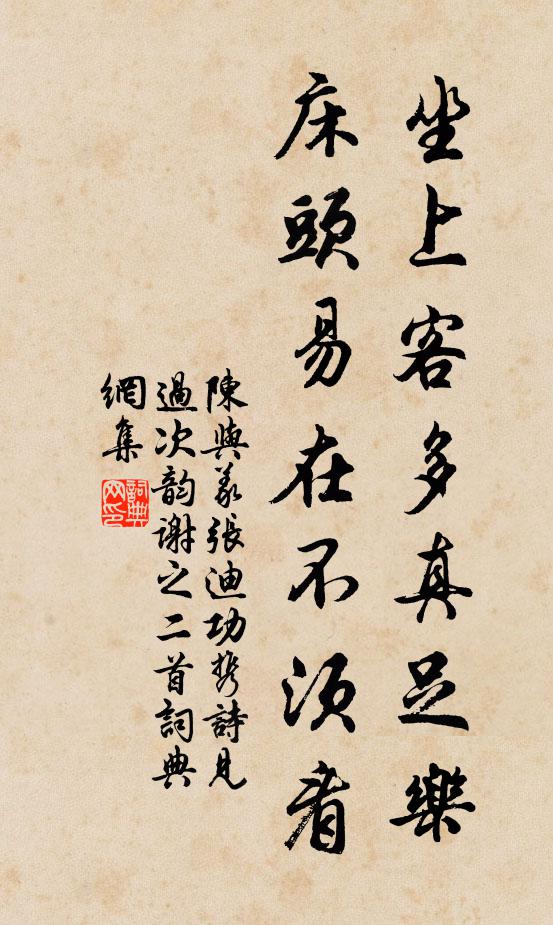 坐上客多真足樂
床頭易在不須看
陳與義張迪功攜詩見
過次韵謝之二首詞典
網集
詞典
网印